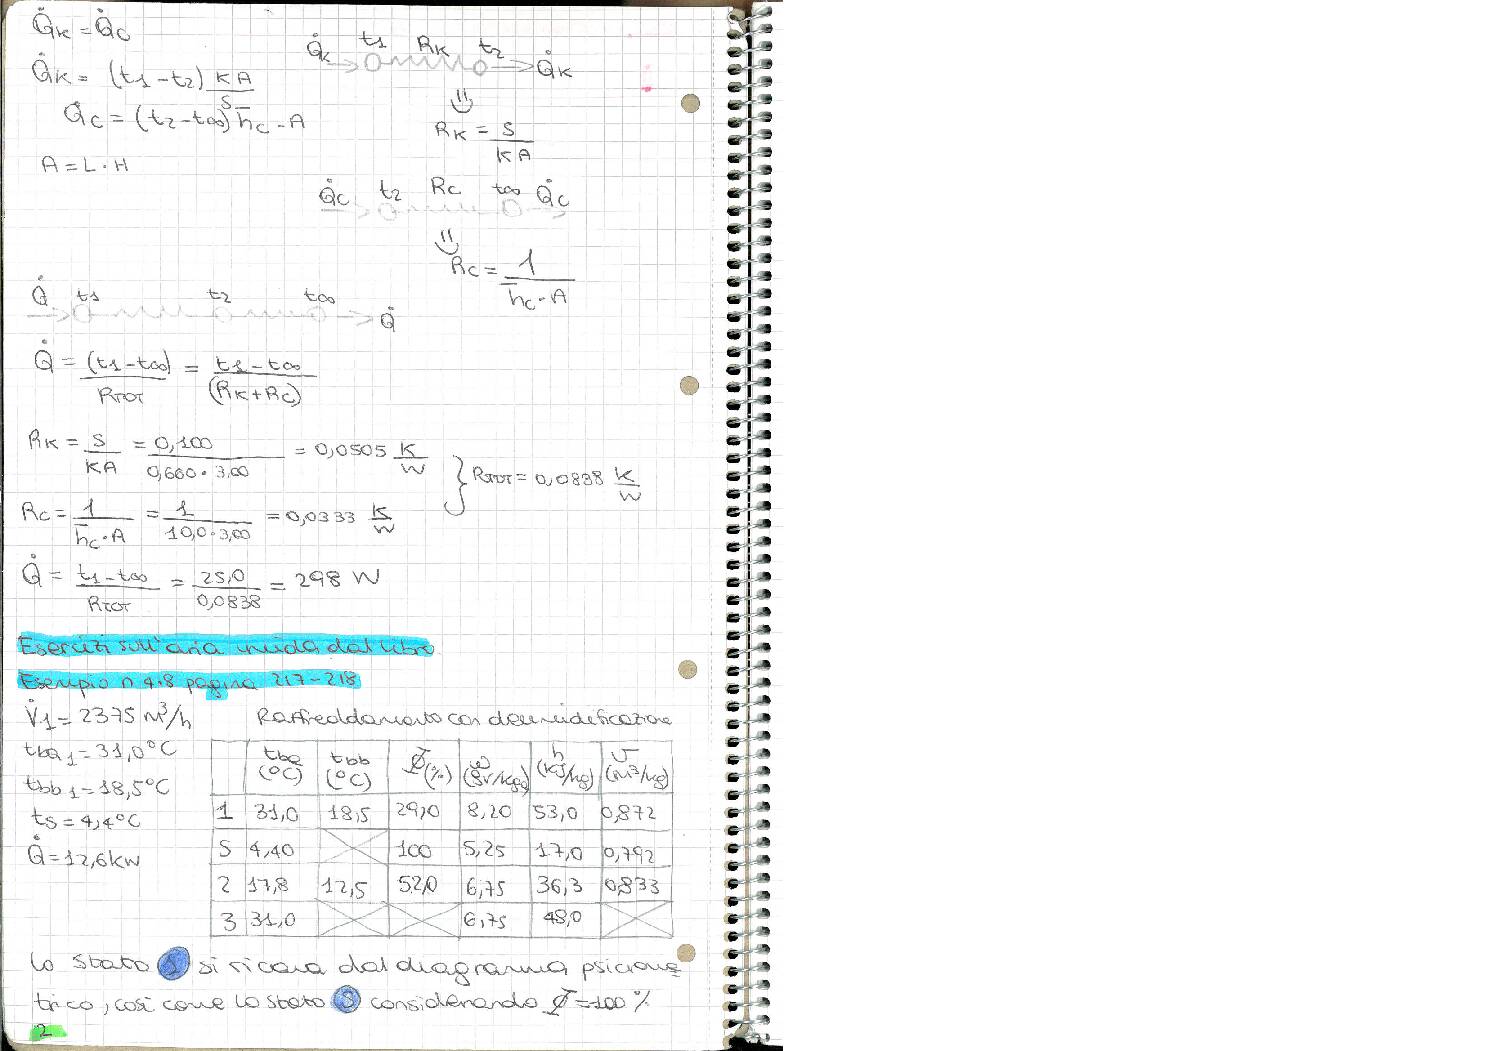 Q̇K = Q̇C
Q̇K = (t1-t2) KA/S
Q̇C = (t2-t∞) h̄C · A
A = L · H
Q̇K t1 RK t2 Q̇K
RK = S/KA
Q̇C t2 RC t∞ Q̇C
RC = 1/h̄C · A
Q̇ t1 t2 t∞ Q̇
Q̇ = (t1-t∞)/RTOT = t1-t∞/(RK+RC)
RK = S/KA = 0,100/0,660 · 3,00 = 0,0505 K/W
RTOT = 0,0838 K/W
RC = 1/h̄C · A = 1/10,0 · 3,00 = 0,0333 K/W
Q̇ = t1-t∞/RTOT = 25,0/0,0838 = 298 W
Esercizi sull'aria umida dal libro
Esempio n 4.8 pagina 217-218
V̇1 = 2375 m³/h
tba1 = 31,0°C
tbb1 = 18,5°C
ts = 4,4°C
Q̇ = 12,6 kW
Raffreddamento con deumidificazione
tba (°C) tbb (°C) Φ(%) ω (gv/kga) h (kJ/kg) v (m³/kg)
1 31,0 18,5 29,0 8,20 53,0 0,872
S 4,40 100 5,25 17,0 0,792
2 17,8 12,5 52,0 6,75 36,3 0,833
3 31,0 6,75 48,0
Lo stato 1 si ricava dal diagramma psicrome
trico, così come lo stato S considerando Φ=100%
2